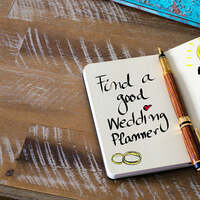 Find a
good
Wedding
Planner